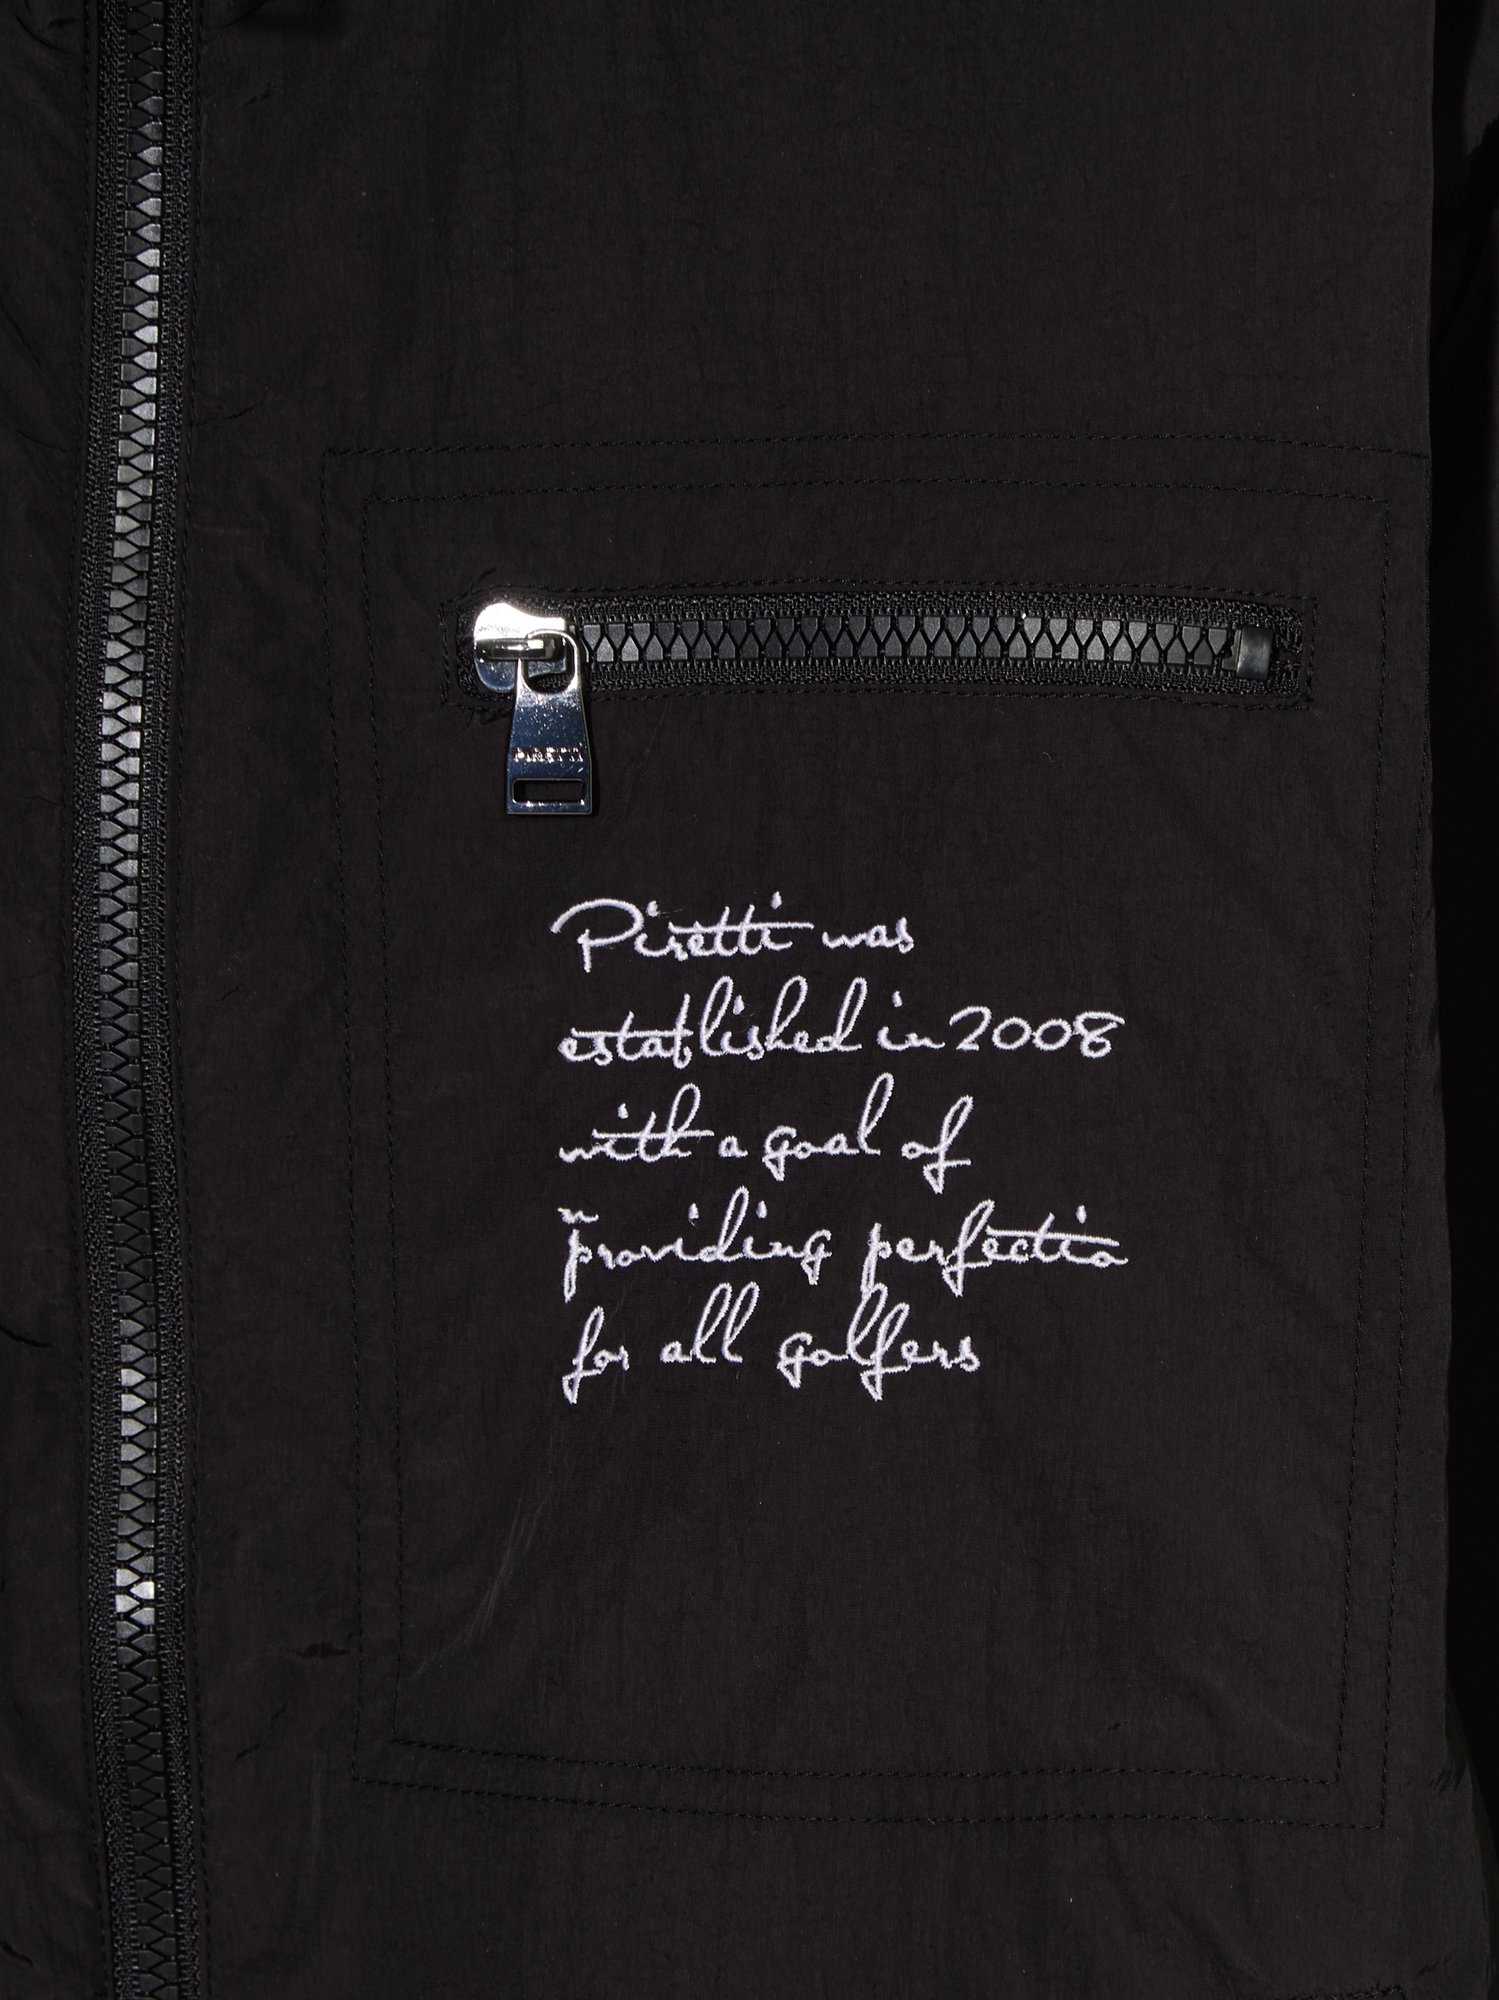 PIRETTI
Piretti was
established in 2008
with a goal of
providing perfectio
n
for all golfers